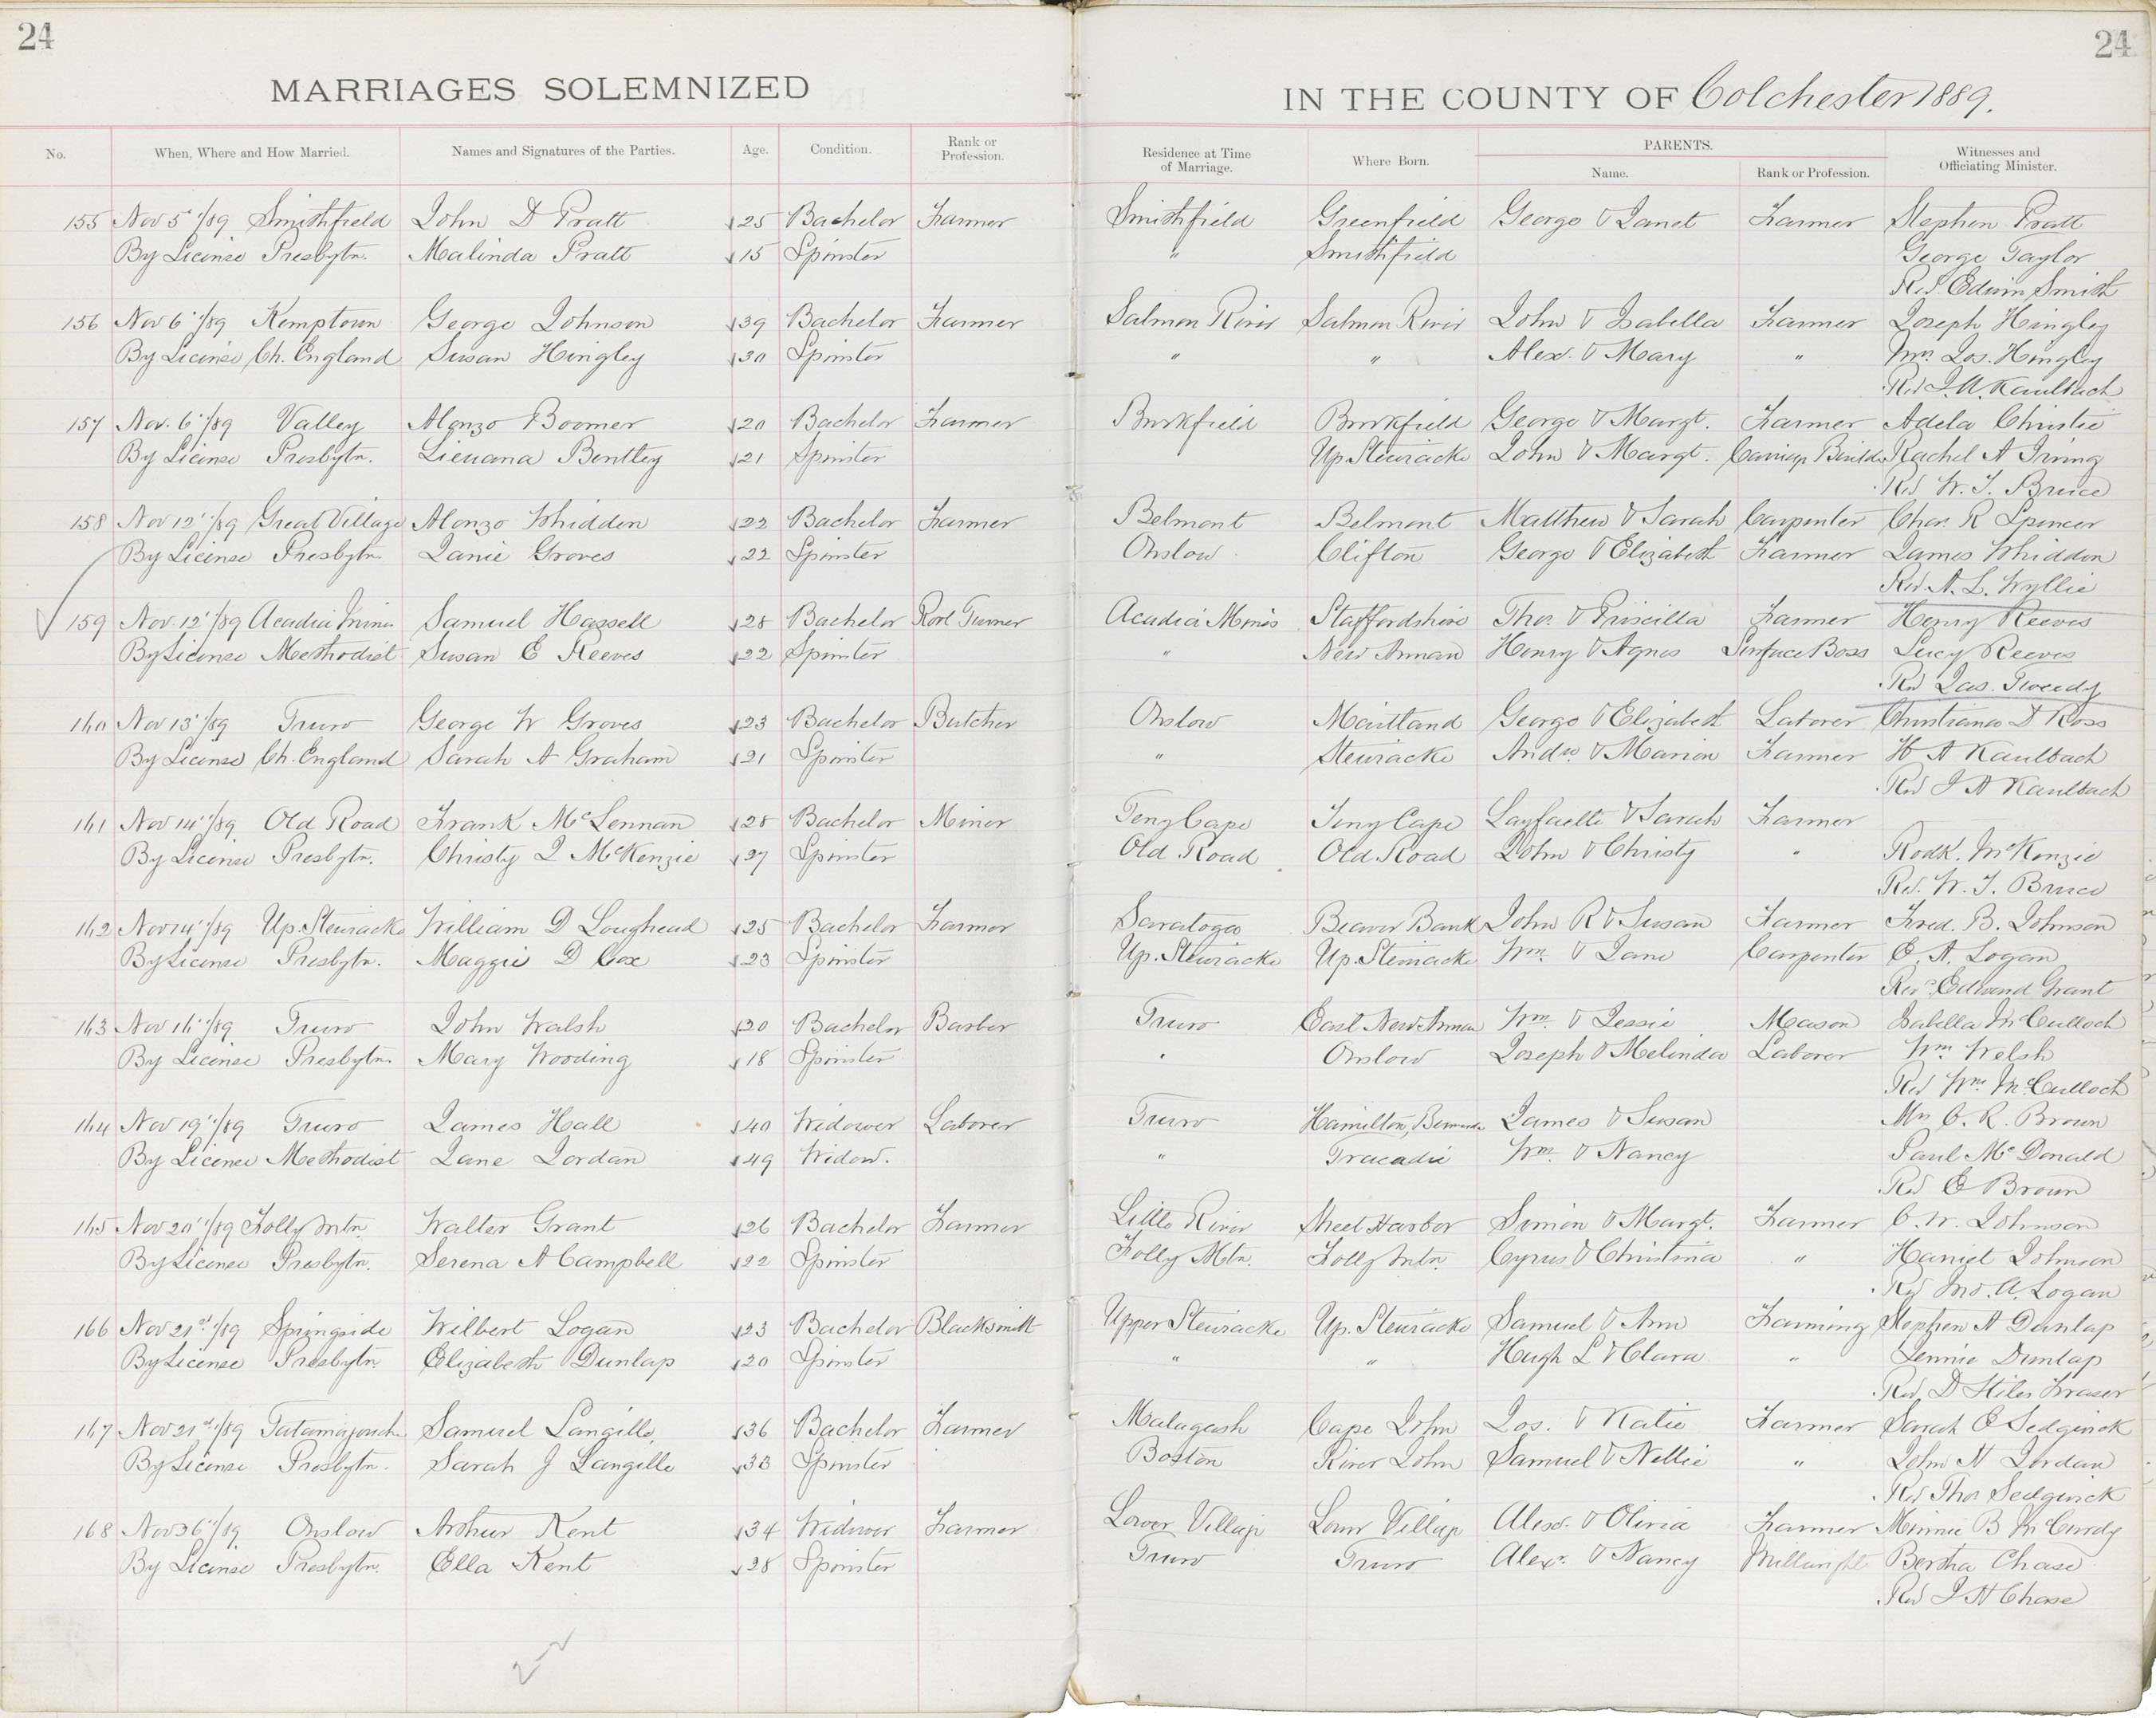 24
24
MARRIAGES SOLEMNIZED IN THE COUNTY OF Colchester 1889.
No. When, Where and How Married. Names and Signatures of the Parties. Age. Condition. Rank or Profession. Residence at Time of Marriage. Where Born. PARENTS. Name. Rank or Profession. Witnesses and Officiating Minister.
155 Nov 5"/89 Smithfield John D Pratt 25 Bachelor Farmer Smithfield Greenfield George & Janet Farmer Stephen Pratt
By License Presbytn. Malinda Pratt 15 Spinster " Smithfield George Taylor
Rev. Edwin Smith
156 Nov 6"/89 Kemptown George Johnson 39 Bachelor Farmer Salmon River Salmon River John & Isabella Farmer Joseph Hingley
By License Ch. England Susan Hingley 30 Spinster " " Alex. & Mary " Mrs Jos. Hingley
Rev J. A. Kaulbach
157 Nov. 6"/89 Valley Alonzo Boomer 20 Bachelor Farmer Brookfield Brookfield George & Margt. Farmer Adela Christie
By License Presbytn. Bentley 21 Spinster Up. Stewiacke John & Margt. Carriage Builder Rachel A Irving
Rev W. T. Bruce
158 Nov 12"/89 Great Village Alonzo Whidden 22 Bachelor Farmer Belmont Belmont Matthew & Sarah Carpenter Chas. R Spencer
By License Presbytn Janie Groves 22 Spinster Onslow Clifton George & Elizabeth Farmer James Whidden
Rev A. L. Wyllie
159 Nov. 12"/89 Acadia Mines Samuel Hassell 28 Bachelor Roll Turner Acadia Mines Staffordshire Thos. & Priscilla Farmer Henry Reeves
By License Methodist Susan E Reeves 22 Spinster " New Annan Henry & Agnes Surface Boss Lucy Reeves
Rev Jas. Tweedy
160 Nov 13"/89 Truro George W Groves 23 Bachelor Butcher Onslow Maitland George & Elizabeth Laborer Christianna D Ross
By License Ch. England Sarah A Graham 21 Spinster " Stewiacke Andw. & Marion Farmer H A Kaulbach
Rev J A Kaulbach
161 Nov 14"/89 Old Road Frank McLennan 28 Bachelor Miner Teny Cape Teny Cape Layfaette & Sarah Farmer
By License Presbytn. Christy J McKenzie 27 Spinster Old Road Old Road John & Christy " Rodk. McKenzie
Rev. W. T. Bruce
162 Nov 14"/89 Up. Stewiacke William D Loughead 25 Bachelor Farmer Saratoga Beaver Bank John R & Susan Farmer Fred. B. Johnson
By License Presbytn. Maggie D Cox 23 Spinster Up. Stewiacke Up. Stewiacke Wm. & Jane Carpenter E. A. Logan
Revd Edward Grant
163 Nov 16"/89 Truro John Walsh 20 Bachelor Barber Truro East New Annan Wm. & Jessie Mason Isabella McCulloch
By License Presbytn. Mary Wooding 18 Spinster " Onslow Joseph & Melinda Laborer Wm Welsh
Rev Wm McCulloch
164 Nov 19"/89 Truro James Hall 40 Widower Laborer Truro Hamilton, Bermuda James & Susan Mrs C. R. Brown
By License Methodist Jane Jordan 49 Widow. " Tracadie Wm. & Nancy Paul McDonald
Rev E Brown
165 Nov 20"/89 Folly Mtn. Walter Grant 26 Bachelor Farmer Little River Sheet Harbor Simon & Margt. Farmer C. W. Johnson
By License Presbytn. Serena A Campbell 22 Spinster Folly Mtn. Folly Mtn. Cyrus & Christina " Johnson
Rev Jno. A. Logan
166 Nov 21st/89 Springside Wilbert Logan 23 Bachelor Blacksmith Upper Stewiacke Up. Stewiacke Samuel & Ann Farming Stephen A Dunlap
By License Presbytn. Elizabeth Dunlap 20 Spinster " " Hugh L & Clara " Jennie Dunlap
Rev. D Stiles Fraser
167 Nov 21st/89 Tatamagouche Samuel Langille. 36 Bachelor Farmer Malagash Cape John Jos. & Katie Farmer Sarah E Sedgwick
By License Presbytn. Sarah J Langille 33 Spinster Boston River John Samuel & Nellie " John H Jordan
Rev Thos Sedgwick
168 Nov 26"/89 Onslow Arthur Kent 34 Widower Farmer Lower Village Lower Village Alex. & Olivia Farmer Minnie B McCurdy
By License Presbytn. Ella Kent 28 Spinster Truro Truro Alexr. & Nancy Millwright Bertha Chase
Rev J H Chase